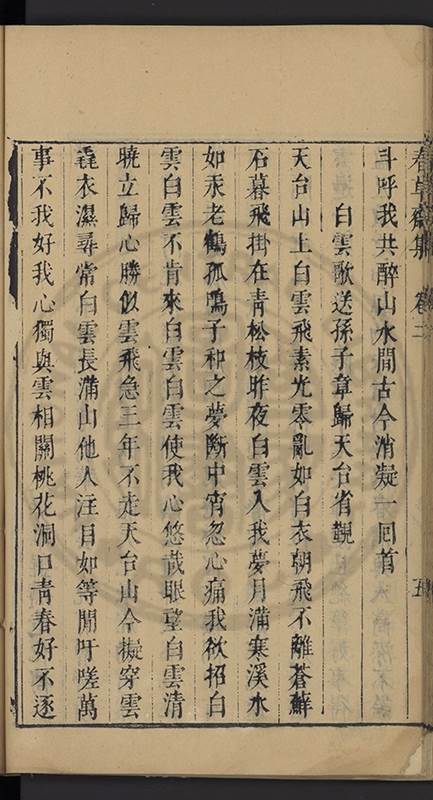 春草齋集 卷二 五
斗呼我共醉山水間古今消凝一回首
白雲歌送孫子章歸天台省覲
天台山上白雲飛素光零亂如白衣朝飛不離蒼蘚
石暮飛掛在青松枝昨夜白雲入我夢月滿寒溪水
如汞老鶴孤鳴子和之夢斷中宵忽心痛我欲招白
雲白雲不肯來白雲白雲使我心悠哉眼望白雲清
曉立歸心勝似雲飛急三年不走天台山今擬穿雲
毳衣濕尋常白雲長滿山他人注目如等閒吁嗟萬
事不我好我心獨與雲相關桃花洞口青春好不逐